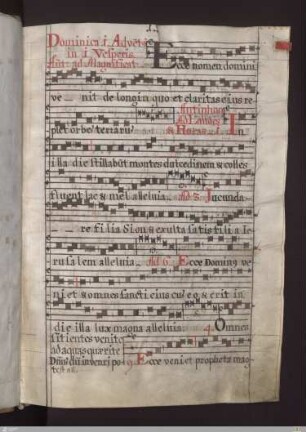 Dominica 1. Advent
in 1. Vesperis
Ant. ad Magnificat
Ecce nomen domini
ve nit de longin quo et claritas eius re
plet orbe terraru
Antiphone
ad Laudes
& Horas 1. In
illa die stillabut montes dulcedinem & colles
fluent lac & mel alleluia Ad 3. Jucunda
re filia Sion & exulta satis filia Je
rusalem alleluia Ad 6. Ecce Domin9 ve
niet & omnes sancti eius cu eo & erit in
die illa lux magna alleluia 4. Omnes
sitientes venite
ad aquas quærite
Dnm dum inveniri po 9. Ecce veniet propheta mag
test ae